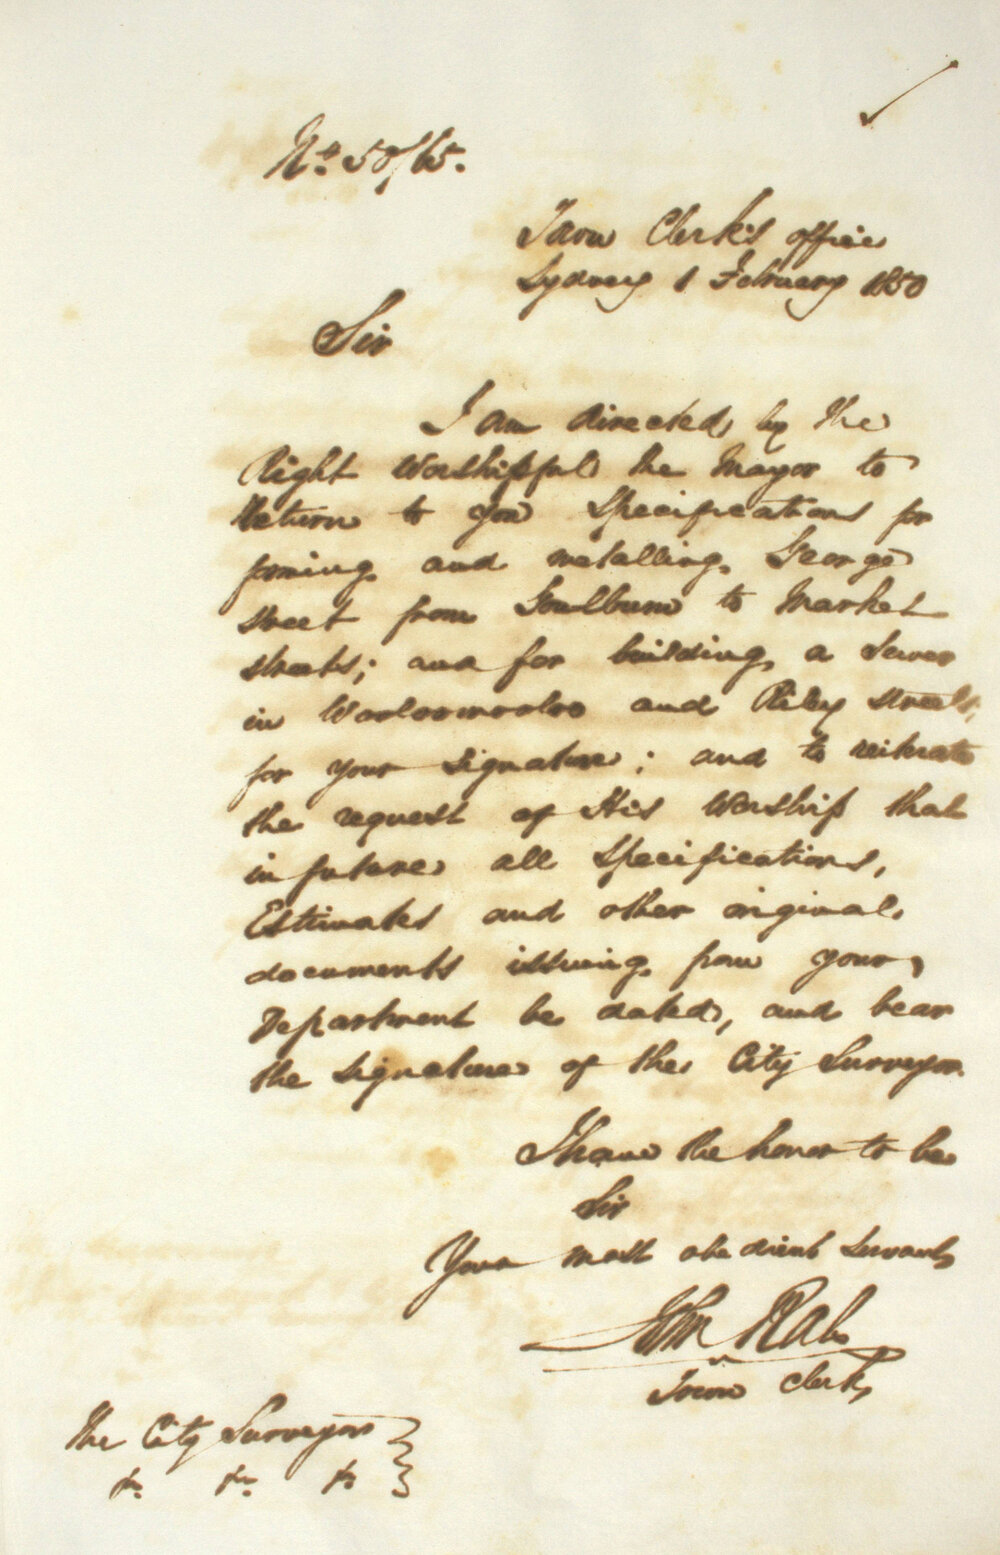 No. 50/65.
Town Clerk's office
Sydney 1 February 1850
Sir
I am directed by the
Right Worshipful the Mayor to
Return to you Specifications for
forming and metalling George
street from Goulburn to Market
streets; and for building a Sewer
in Woolloomooloo and Riley streets,
for your signature; and to reiterate
the request of His Worship that
in future all Specifications,
Estimates and other original
documents issuing from your
Department be dated, and bear
the signature of the City Surveyor.
I have the honor to be
Sir
Your most obedient Servant
John Rae
Town Clerk
The City Surveyor
&c. &c. &c.